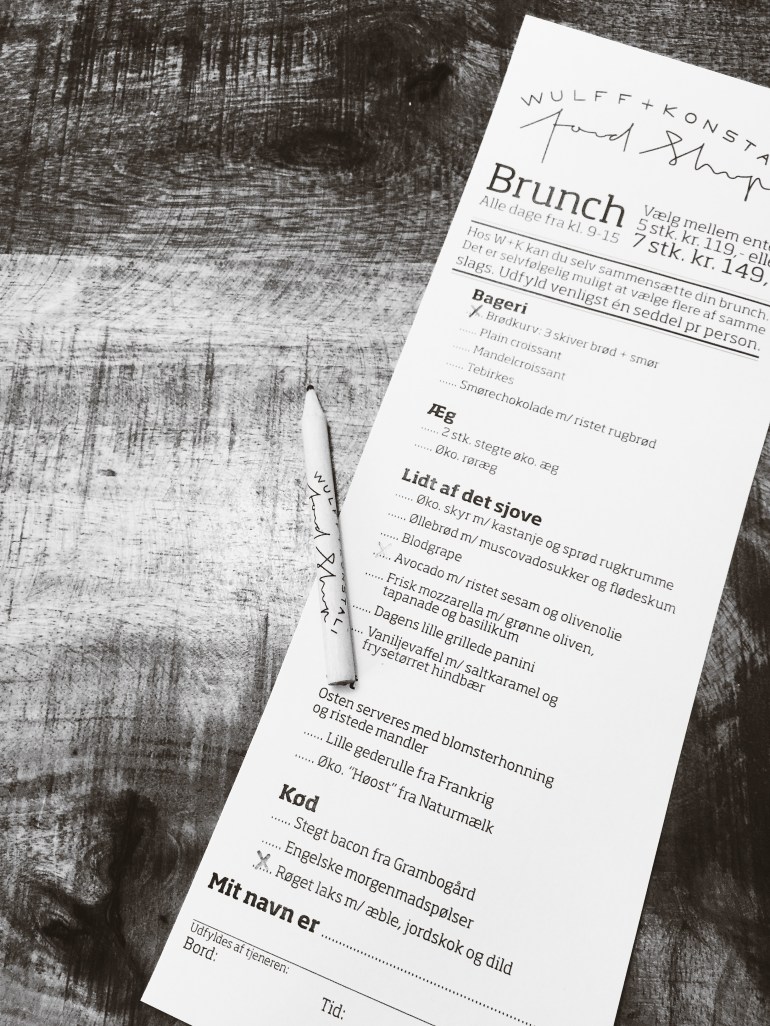 WULFF+KONSTA
Food Shop
Brunch
Alle dage fra kl. 9-15
Vælg mellem ente
5 stk. kr. 119,- elle
7 stk. kr. 149,
Hos W+K kan du selv sammensætte din brunch.
Det er selvfølgelig muligt at vælge flere af samme
slags. Udfyld venligst én seddel pr person.
Bageri
x Brødkurv: 3 skiver brød + smør
...... Plain croissant
...... Mandelcroissant
...... Tebirkes
...... Smørechokolade m/ ristet rugbrød
Æg
...... 2 stk. stegte øko. æg
...... Øko. røræg
Lidt af det sjove
...... Øko. skyr m/ kastanje og sprød rugkrumme
...... Øllebrød m/ muscovadosukker og flødeskum
...... Blodgrape
x Avocado m/ ristet sesam og olivenolie
...... Frisk mozzarella m/ grønne oliven,
tapanade og basilikum
...... Dagens lille grillede panini
...... Vaniljevaffel m/ saltkaramel og
frysetørret hindbær
Osten serveres med blomsterhonning
og ristede mandler
...... Lille gederulle fra Frankrig
...... Øko. "Høost" fra Naturmælk
Kød
...... Stegt bacon fra Grambogård
...... Engelske morgenmadspølser
x Røget laks m/ æble, jordskok og dild
Mit navn er ......
Udfyldes af tjeneren:
Bord:
Tid:
WULFF KONSTALI
Food Shop